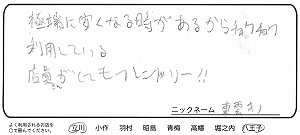 極端に安くなる時があるからチョクチョク
利用している
店員がとてもフレンドリー!!
ニックネーム
よく利用されるお店を
○で囲んでください。
立川 小作 羽村 昭島 青梅 高幡 堀之内 八王子